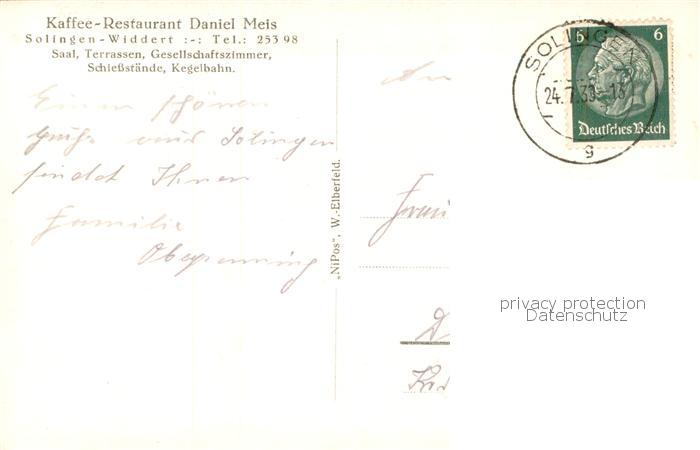 Kaffee-Restaurant Daniel Meis
Solingen-Widdert :-: Tel.: 253 98
Saal, Terrassen, Gesellschaftszimmer,
Schießstände, Kegelbahn.
Einen schönen
Gruß aus Solingen
sendet Ihnen
Familie
"NiPos", W.-Elberfeld.
An
SOLINGEN
24.7.39.-18
g
6 6
Deutsches Reich
privacy protection
Datenschutz